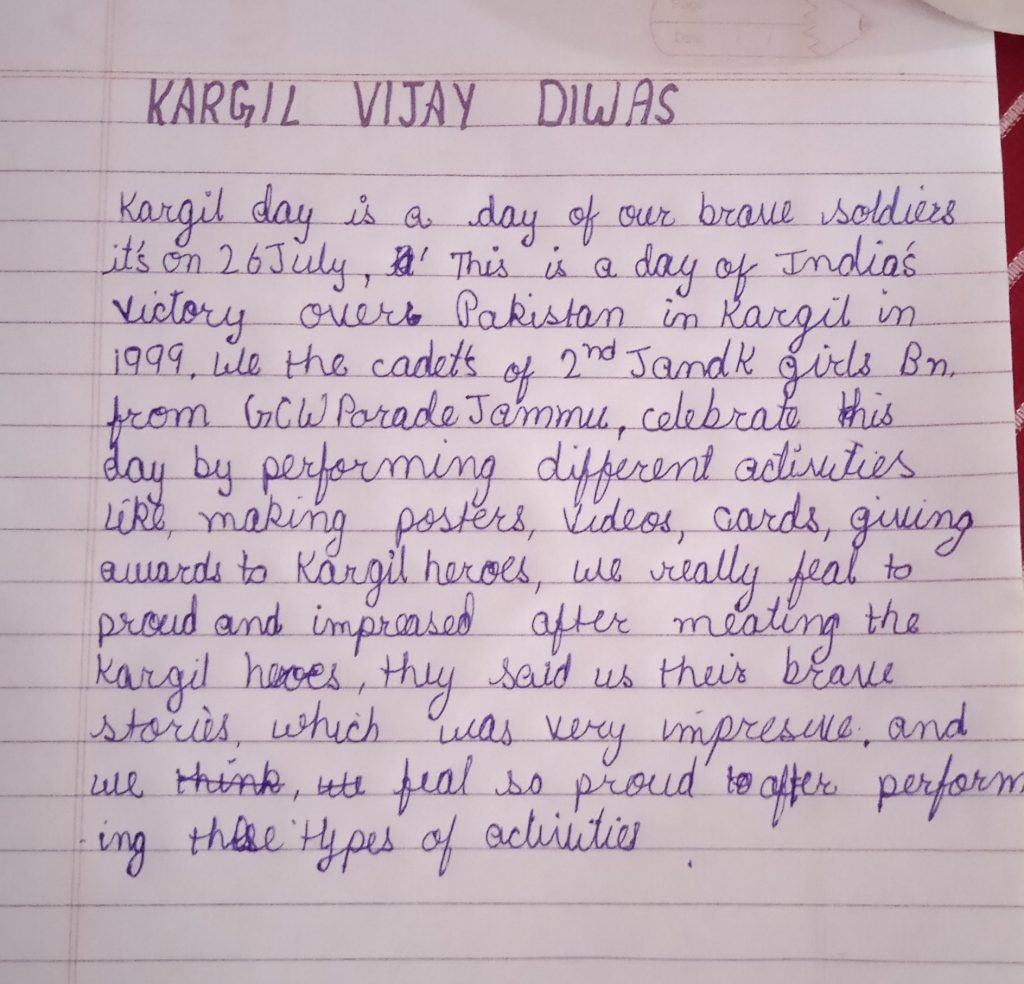 KARGIL VIJAY DIWAS
Kargil day is a day of our brave soldiers
it's on 26 July, This is a day of India's
victory over Pakistan in Kargil in
1999. We the cadets of 2nd JandK girls Bn.
from GCW Parade Jammu, celebrate this
day by performing different activities
like, making posters, videos, cards, giving
awards to Kargil heroes, we really feal to
proud and impreased after meating the
Kargil heroes, they said us their brave
stories, which was very impresive. and
we think, we feal so proud to after perform
ing these types of activities .